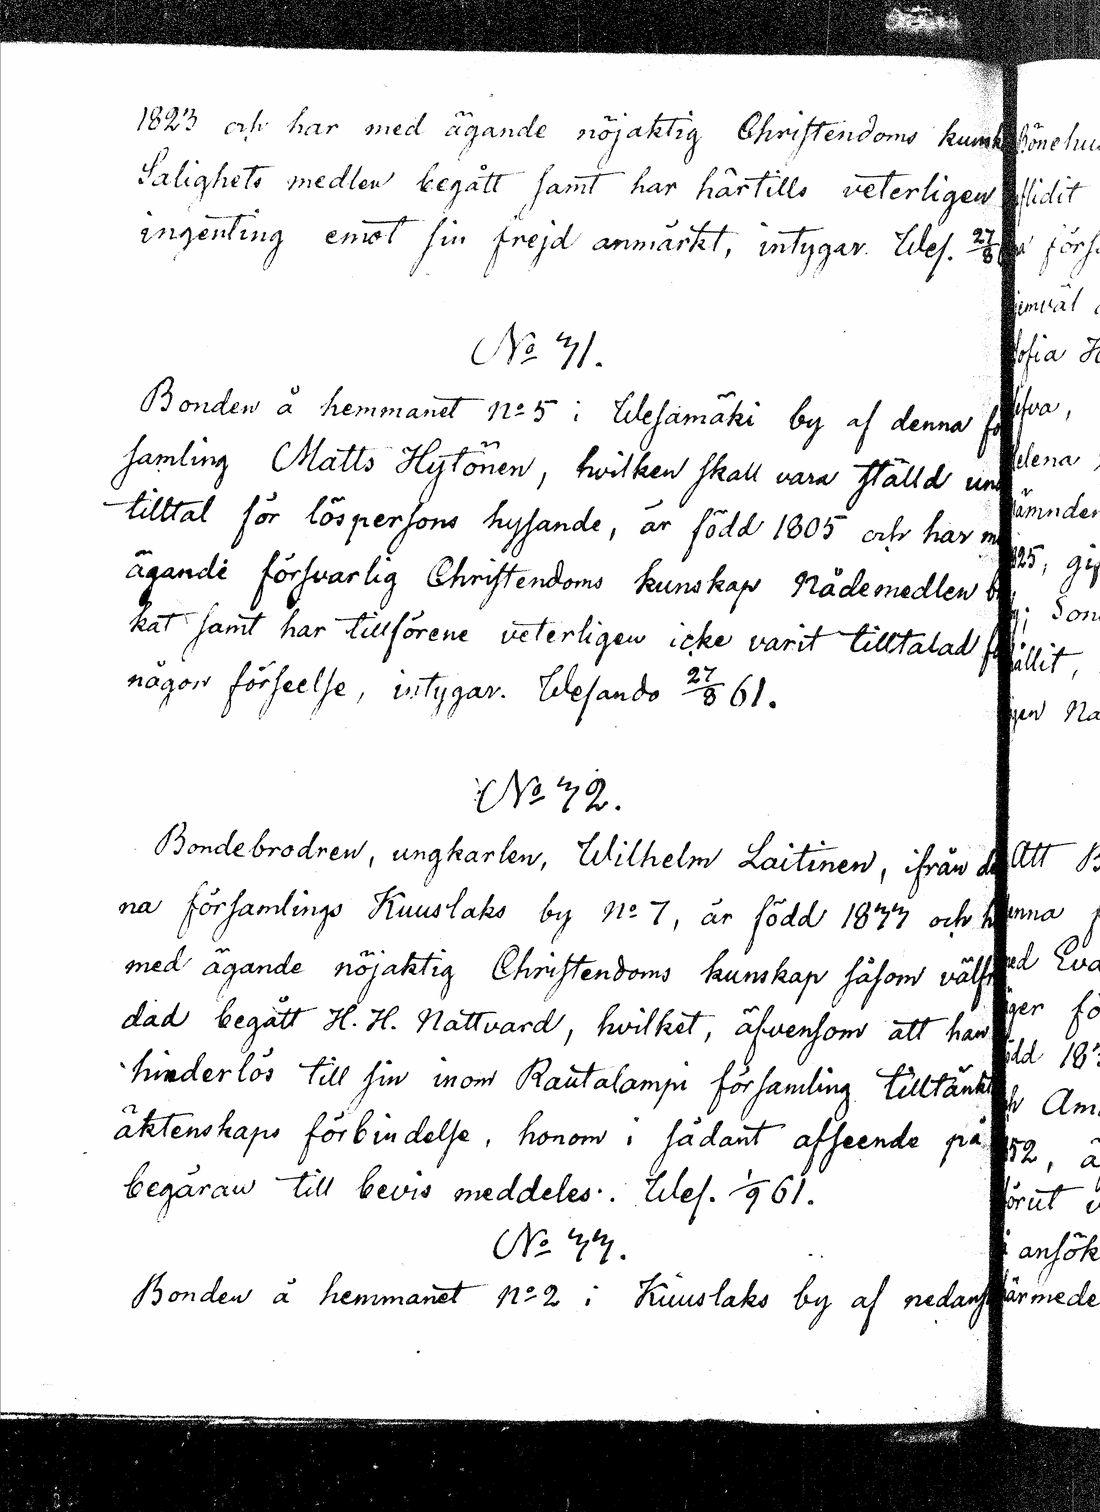 1823 och har med ägande nöjaktig Christendoms kunsk
Salighets medlen begått samt har härtills veterligen
ingenting emot sin frejd anmärkt, intygar. Wes. 27/8
No 31.
Bonden å hemmanet no 5 i Wesamäki by af denna fö
samling Matts Hytönen, hvilken skall vara ställd und
tilltal för löspersons hysande, är född 1805 och har m
ägande försvarlig Christendoms kunskap Nådemedlen b
kat samt har tillförene veterligen icke varit tilltalad fö
någon förseelse, intygar. Wesando 27/8 61.
No 32.
Bondebrodren, ungkarlen, Wilhelm Laitinen, ifrån de
na församlings Kuuslaks by no 7, är född 1833 och h
med ägande nöjaktig Christendoms kunskap såsom välfr
dad begått H. H. Nattvard, hvilket, äfvensom att han
hinderlös till sin inom Rautalampi församling tilltänkt
äktenskaps förbindelse, honom i sådant afseende på
begäran till bevis meddeles. Wes. 1/9 61.
No 33.
Bonden å hemmanet no 2 i Kuuslaks by af nedans
Bönehus
flidit
förs
jemväl
Sofia H
lfva,
elena
ämnden
825, gif
Son
ållit,
gen Na
Att B
enna f
med Eva
ger fö
ödd 183
ch Am
52, ä
förut v
ansök
härmede